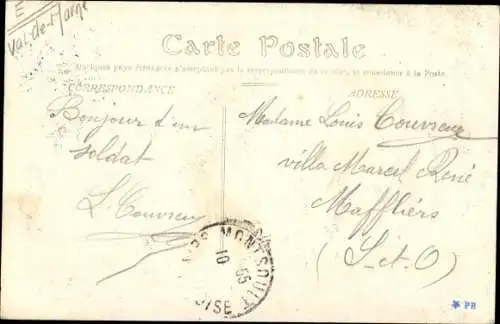 E
Val-de-Marne
Carte Postale
Quelques pays étrangers n'acceptent pas la correspondance de ce côté, se renseigner à la Poste
CORRESPONDANCE
ADRESSE
Bonjour d'un
soldat
L. Couvreur
Madame Louis Couvreur
villa Marcel René
Maffliers
(S-et-O)
MONTSOULT
10
OISE
PB